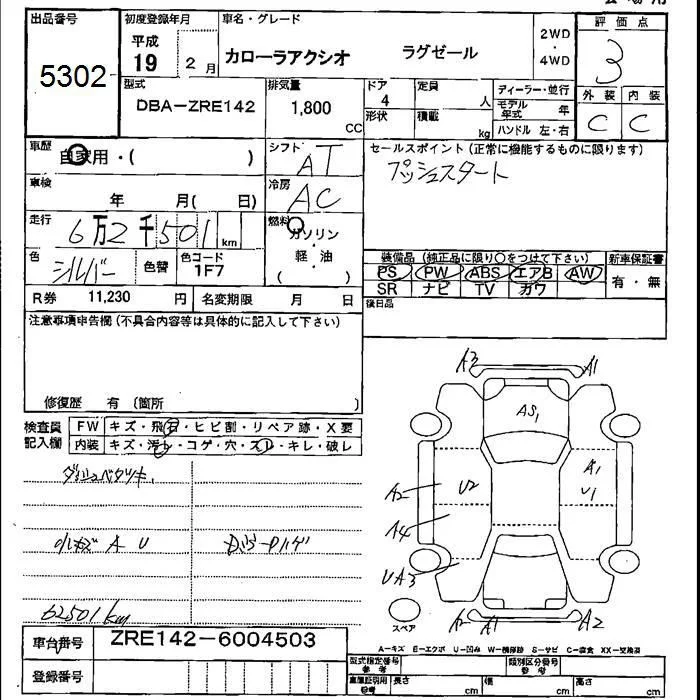 出品番号
5302
初度登録年月
平成
19 2月
車名・グレード
カローラアクシオ ラグゼール
2WD
・
4WD
評価点
3
外装 内装
C C
型式
DBA-ZRE142
排気量
1,800
CC
ドア
4
形状
定員
人
積載
kg
ディーラー・並行
モデル年式 年
ハンドル 左・右
車歴
自家用・( )
シフト
AT
セールスポイント(正常に機能するものに限ります)
プッシュスタート
車検
年 月( 日)
冷房
AC
走行
6万2千501km
燃料
ガソリン
・
軽・油
( )
色
シルバー
色替
色コード
1F7
装備品(純正品に限り○をつけて下さい)
PS PW ABS エアB AW
SR ナビ TV カワ
新車保証書
有・無
R券 11,230 円
名変期限 月 日
後日品
注意事項申告欄(不具合内容等は具体的に記入して下さい)
修復歴 有(箇所 )
検査員
記入欄
FW キズ・飛石・ヒビ割・リペア跡・X要
内装 キズ・汚レ・コゲ・穴・スレ・キレ・破レ
ダッシュベタツキ
小キズ A U
62501km
A3 A1
AS1
A1
U1
A2 U2
A4
UA3
A2 A1 A2
スペア
A-キズ E-エクボ U-凹み W-補修跡 S-サビ C-腐食 XX-交換済
車台番号 ZRE142-6004503
登録番号
型式指定番号
参考
類別区分番号
参考
車庫証明用
参考
長さ cm
幅 cm
高さ cm